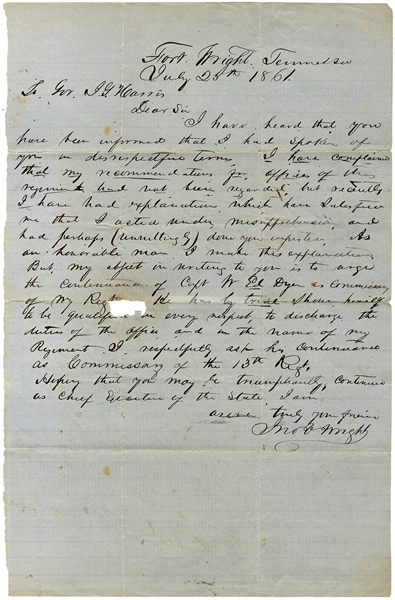 Fort Wright Tennessee
July 25th 1861
To Gov. I G Harris
Dear Sir
I have heard that you
have been informed that I had spoken of
you in disrespectful terms I have complained
that my recommendations for offices of the
regiment had not been regarded, but recently
I have had explanations which have satisfied
me that I acted under misapprehension, and
had perhaps (unwittingly) done you injustice. As
an honorable man I make this explanation
But, my object in writing to you is to urge
the continuance of Capt W Ed Dyer as Commissary
of my Regt He has by trial shown himself
to be qualified in every respect to discharge the
duties of the office and in the name of my
Regiment I respectfully ask his continuance
as Commissary of the 13th Reg,
Hoping that you may be triumphantly continued
as Chief Executive of the State I am
as ever truly your friend
Jno V Wright